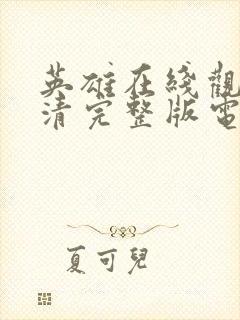 英雄在綫觀
清完整版電
夏可兒